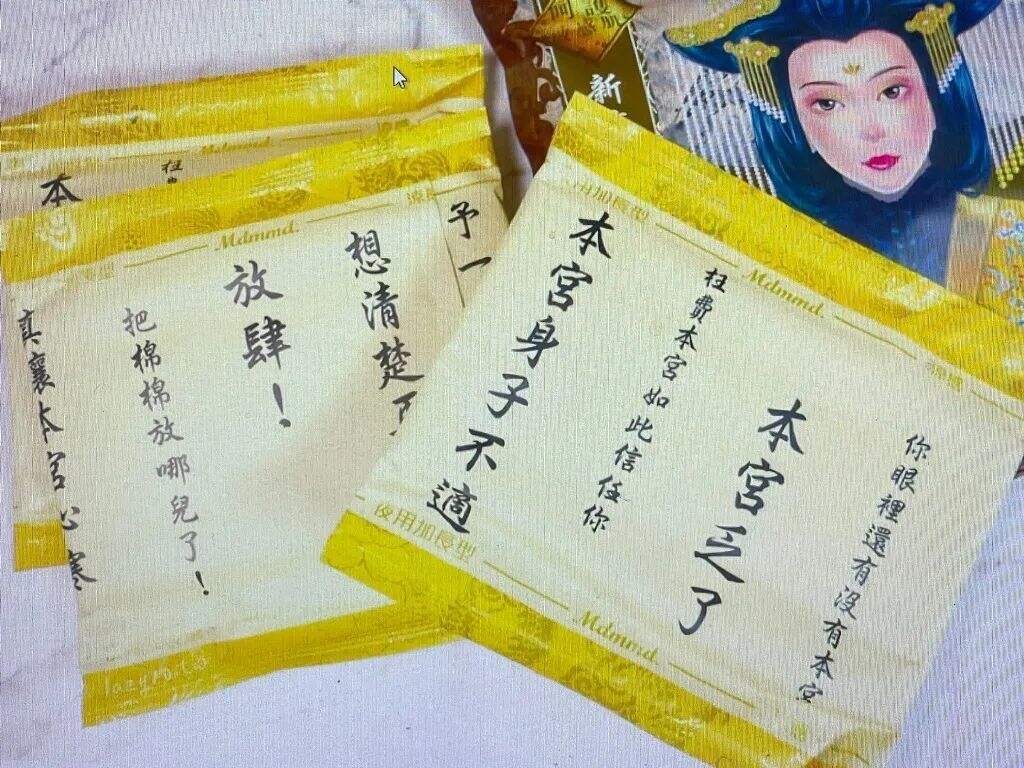 新
Mdmmd.
本
枉
Mdmmd.
予一
想清楚了
放肆！
把棉棉放哪兒了！
真襄本宮心寒
lazyrota
夜用加長型
Mdmmd.
你眼裡還有沒有本宮
本宮乏了
枉費本宮如此信任你
本宮身子不適
夜用加長型
Mdmmd.